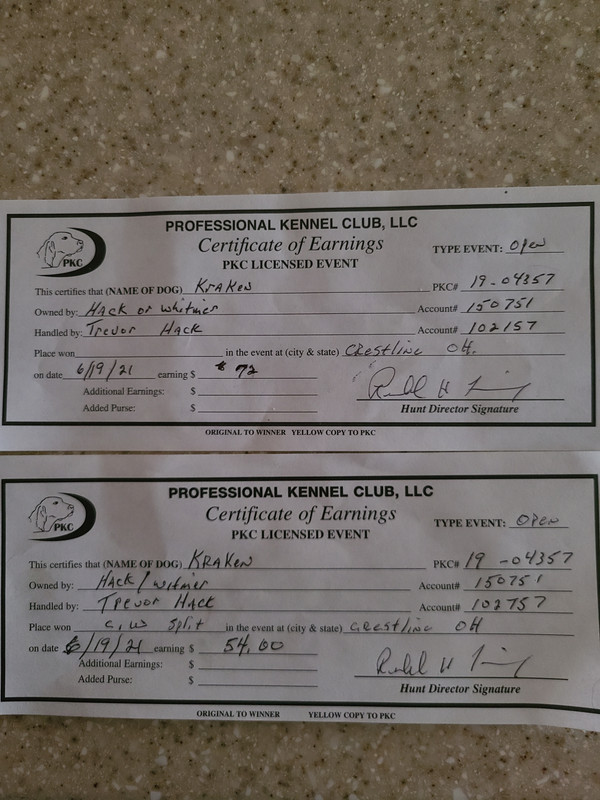 PROFESSIONAL KENNEL CLUB, LLC
Certificate of Earnings
TYPE EVENT: Open
PKC LICENSED EVENT
PKC
This certifies that (NAME OF DOG) KraKen PKC# 19-04357
Owned by: Hack or Whitmer Account# 150751
Handled by: Trevor Hack Account# 102157
Place won in the event at (city & state) Crestline OH.
on date 6/19/21 earning $ $ 72
Additional Earnings: $
Added Purse: $
Hunt Director Signature
ORIGINAL TO WINNER YELLOW COPY TO PKC
PROFESSIONAL KENNEL CLUB, LLC
Certificate of Earnings
TYPE EVENT: OPEN
PKC LICENSED EVENT
PKC
This certifies that (NAME OF DOG) KRAKEN PKC# 19-04357
Owned by: Hack/Witmer Account# 150751
Handled by: Trevor Hack Account# 102757
Place won c,w split in the event at (city & state) Crestline OH
on date 6/19/21 earning $ 54,00
Additional Earnings: $
Added Purse: $
Hunt Director Signature
ORIGINAL TO WINNER YELLOW COPY TO PKC